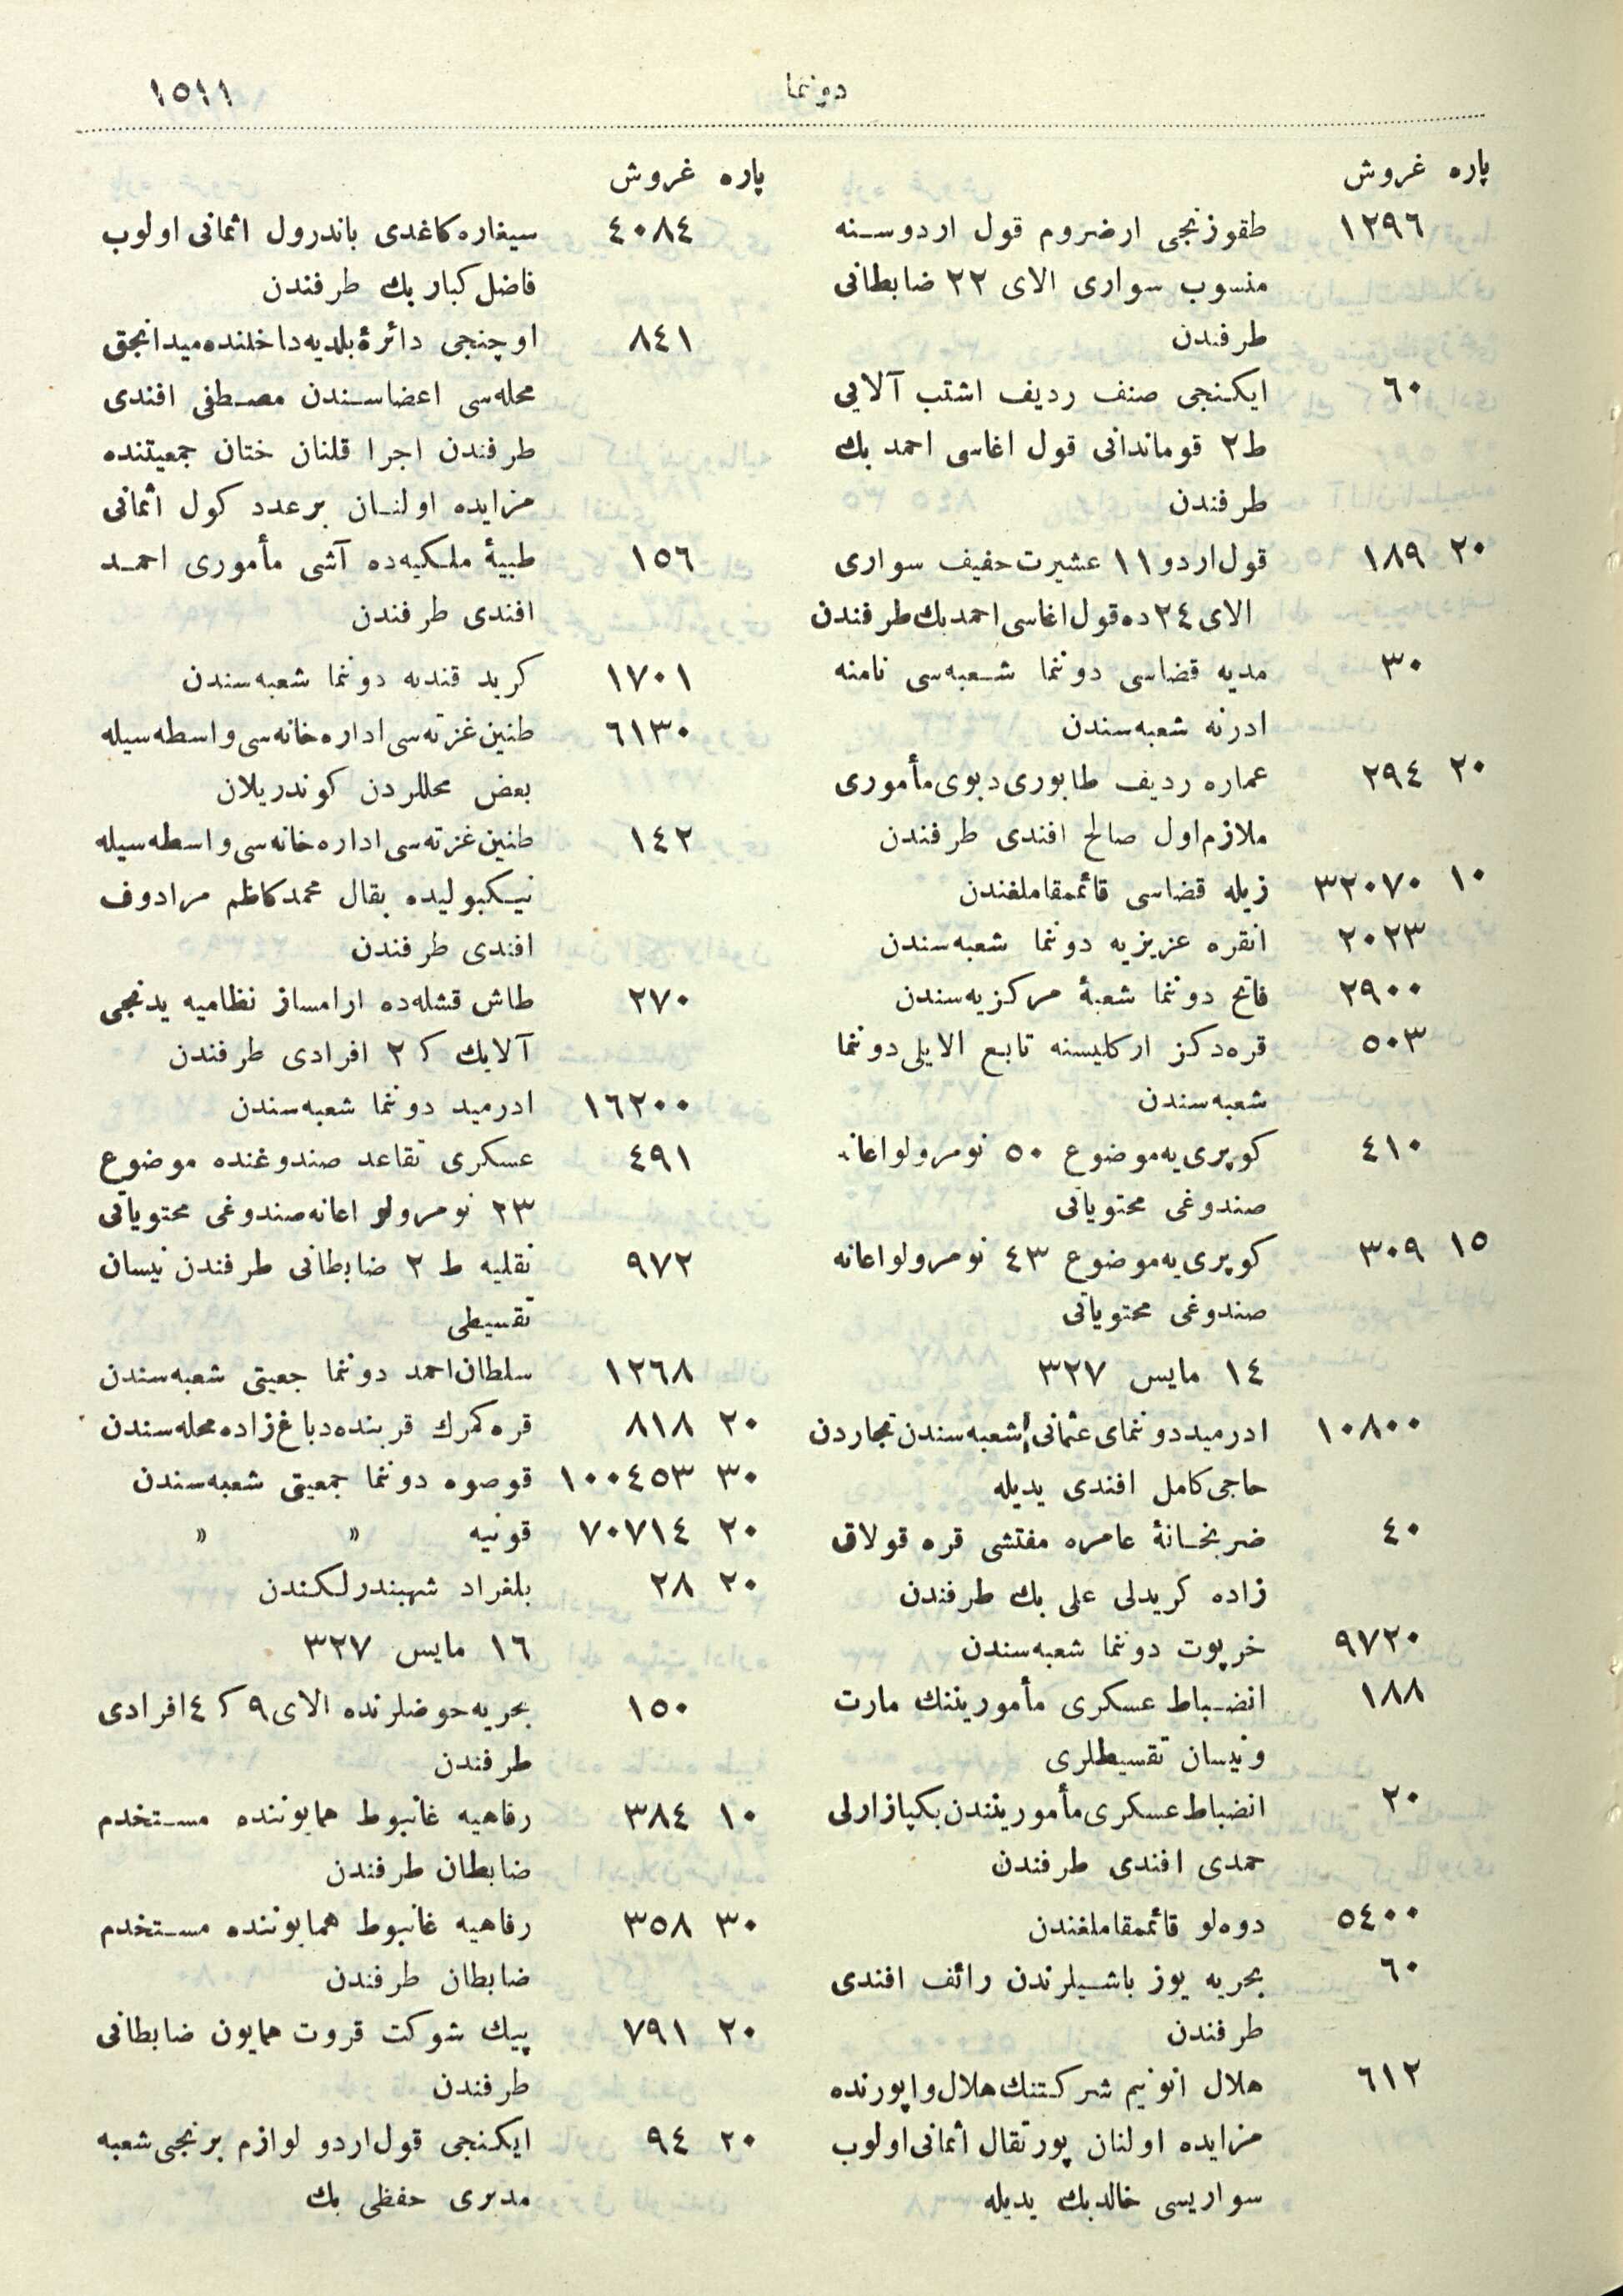 دوننما
١٥١١
پاره غروش
١٢٩٦ طقوزنجی ارضروم قول اردوسنه
منسوب سواری الای ٢٢ ضابطانی
طرفندن
٦٠ ایکنجی صنف ردیف اشتب آلایی
ط٢ قوماندانی قول اغاسی احمد بك
طرفندن
٢٠ ١٨٩ قول اردو ١١ عشیرت حفیف سواری
الای ٢٤ ده قول اغاسی احمد بك طرفندن
٣٠ مدیه قضاسی دوننما شعبه‌سی نامنه
ادرنه شعبه‌سندن
٢٠ ٢٩٤ عماره ردیف طابوری دبوی مأموری
ملازم اول صالح افندی طرفندن
١٠ ٣٢٠٧٠ زیله قضاسی قائممقاملغندن
٢٠٢٣ انقره عزیزیه دوننما شعبه‌سندن
٢٩٠٠ فاتح دوننما شعبهٔ مرکزیه‌سندن
٥٠٣ قره‌دکز ارکلیسنه تابع الایلی دوننما
شعبه‌سندن
٤١٠ کوپری‌یه موضوع ٥٠ نومرولو اعانه
صندوغی محتویاتی
١٥ ٣٠٩ کوپری‌یه موضوع ٤٣ نومرولو اعانه
صندوغی محتویاتی
١٤ مایس ٣٢٧
١٠٨٠٠ ادرمید دوننمای عثمانی شعبه‌سندن تجاردن
حاجی کامل افندی یدیله
٤٠ ضربخانهٔ عامره مفتشی قره قولاق
زاده کریدلی علی بك طرفندن
٩٧٢٠ خرپوت دوننما شعبه‌سندن
١٨٨ انضباط عسکری مأموریننك مارت
ونیسان تقسیطلری
٢٠ انضباط عسکری مأموریندن بکپازارلی
حمدی افندی طرفندن
٥٤٠٠ دوه‌لو قائممقاملغندن
٦٠ بحریه یوز باشیلرندن رائف افندی
طرفندن
٦١٢ هلال انونیم شرکتنك هلال واپورنده
مزایده اولنان پورتقال اثمانی اولوب
سواریسی خالد بك یدیله
پاره غروش
٤٠٨٤ سیغاره کاغدی باندرول اثمانی اولوب
فاضل کبار بك طرفندن
٨٤١ اوچنجی دائرهٔ بلدیه داخلنده میدانجق
محله‌سی اعضاسندن مصطفی افندی
طرفندن اجرا قلنان ختان جمعیتنده
مزایده اولنان بر عدد کول اثمانی
١٥٦ طبیهٔ ملکیه‌ده آشی مأموری احمد
افندی طرفندن
١٧٠١ کرید قندیه دوننما شعبه‌سندن
٦١٣٠ طنین غزته‌سی اداره‌خانه‌سی واسطه‌سیله
بعض محللردن کوندریلان
١٤٢ طنین غزته‌سی اداره‌خانه‌سی واسطه‌سیله
نیکبولیده بقال محمد کاظم مرادوف
افندی طرفندن
٢٧٠ طاش قشله‌ده ارامساز نظامیه یدنجی
آلایك ك ٢ افرادی طرفندن
١٦٢٠٠ ادرمید دوننما شعبه‌سندن
٤٩١ عسکری تقاعد صندوغنده موضوع
٢٣ نومرولو اعانه صندوغی محتویاتی
٩٧٢ نقلیه ط ٢ ضابطانی طرفندن نیسان
تقسیطی
١٢٦٨ سلطان احمد دوننما جمعیتی شعبه‌سندن
٢٠ ٨١٨ قره کمرك قربنده دباغ زاده محله‌سندن
٣٠ ١٠٠٤٥٣ قوصوه دوننما جمعیتی شعبه‌سندن
٢٠ ٧٠٧١٤ قونیه » »
٢٠ ٢٨ بلغراد شهبندرلکندن
١٦ مایس ٣٢٧
١٥٠ بحریه حوضلرنده الای ٩ ك ٤ افرادی
طرفندن
١٠ ٣٨٤ رفاهیه غانبوط همایوننده مستخدم
ضابطان طرفندن
٣٠ ٣٥٨ رفاهیه غانبوط همایوننده مستخدم
ضابطان طرفندن
٢٠ ٧٩١ پیك شوکت قروت همایون ضابطانی
طرفندن
٢٠ ٩٤ ایکنجی قول اردو لوازم برنجی شعبه
مدیری حفظی بك